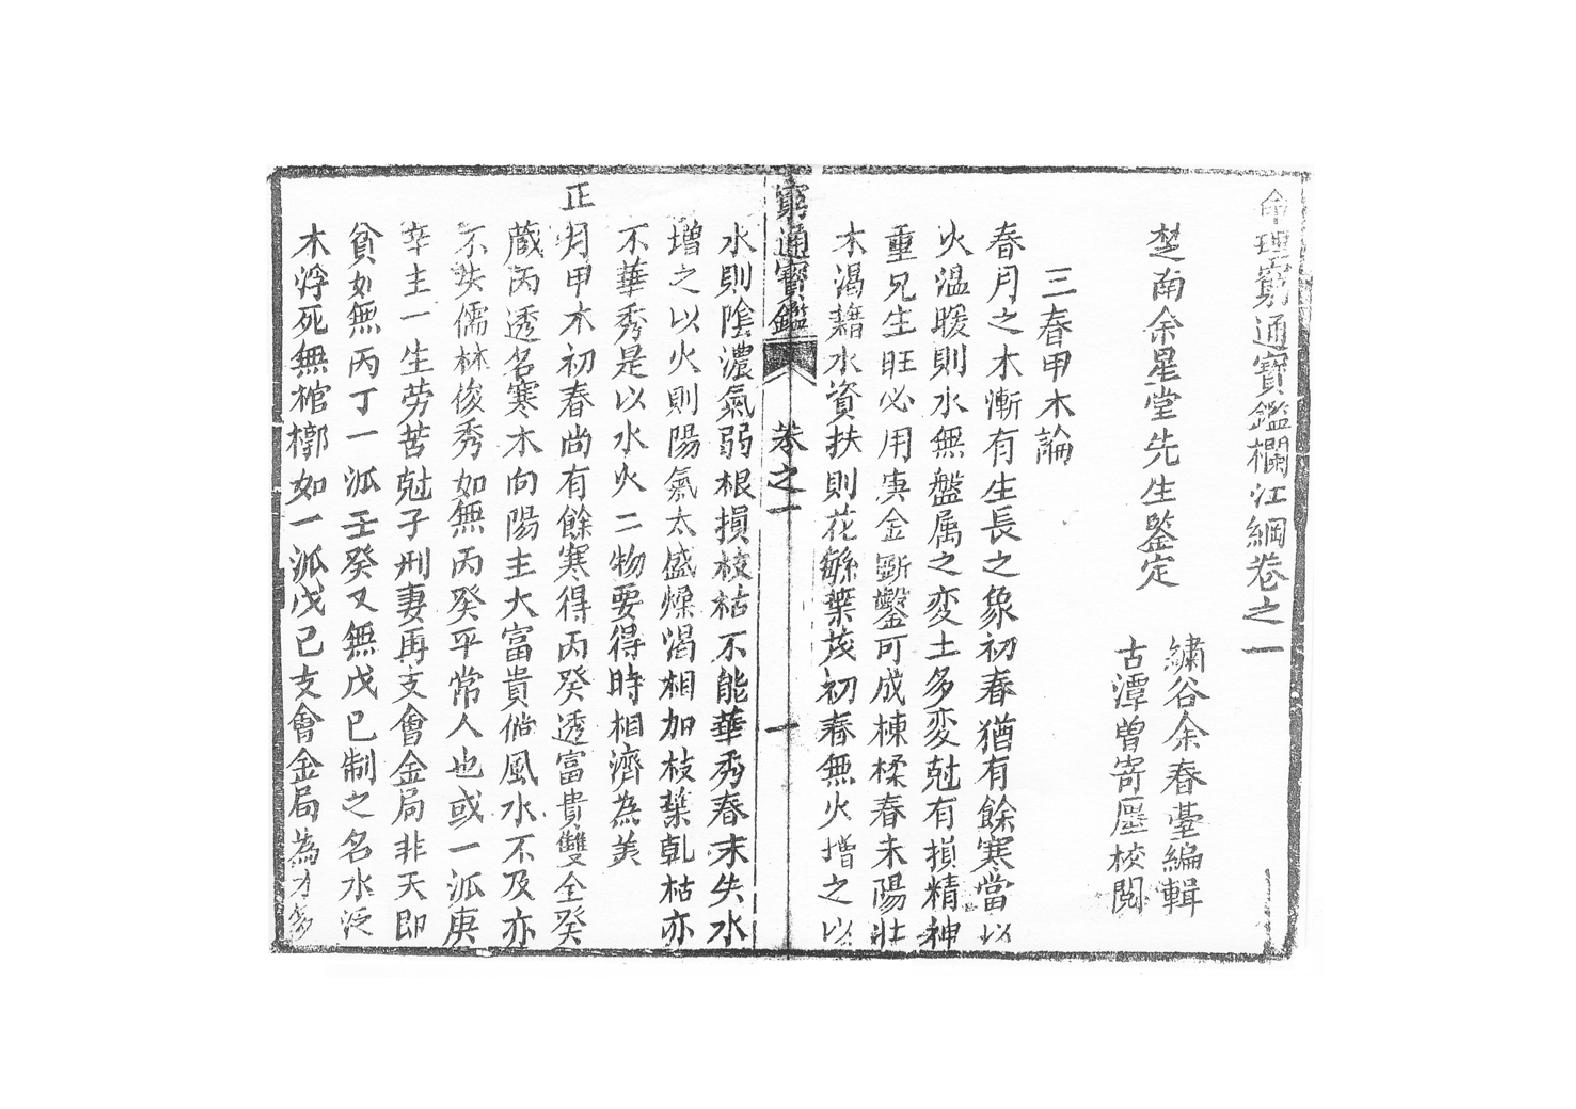 命理窮通寶鑑欄江綱卷之一
楚南余星堂先生鑒定
繡谷余春臺編輯
古潭曾寄厔校閱
三春甲木論
春月之木漸有生長之象初春猶有餘寒當以
火溫暖則水無盤属之变土多変尅有損精神
重兄生旺必用庚金斵鑿可成棟樑春末陽壯
木渴藉水資扶則花繁葉茂初春無火增之以
窮通寶鑑 卷之一 一
水則陰濃氣弱根損枝枯不能華秀春末失水
增之以火則陽氣太盛燥渴相加枝葉乾枯亦
不華秀是以水火二物要得時相濟為美
正月甲木初春尚有餘寒得丙癸透富貴雙全癸
藏丙透名寒木向陽主大富貴倘風水不及亦
不失儒林俊秀如無丙癸平常人也或一派庚
辛主一生劳苦尅子刑妻再支會金局非夭即
貧如無丙丁一派壬癸又無戊己制之名水泛
木浮死無棺槨如一派戊己支會金局為才多